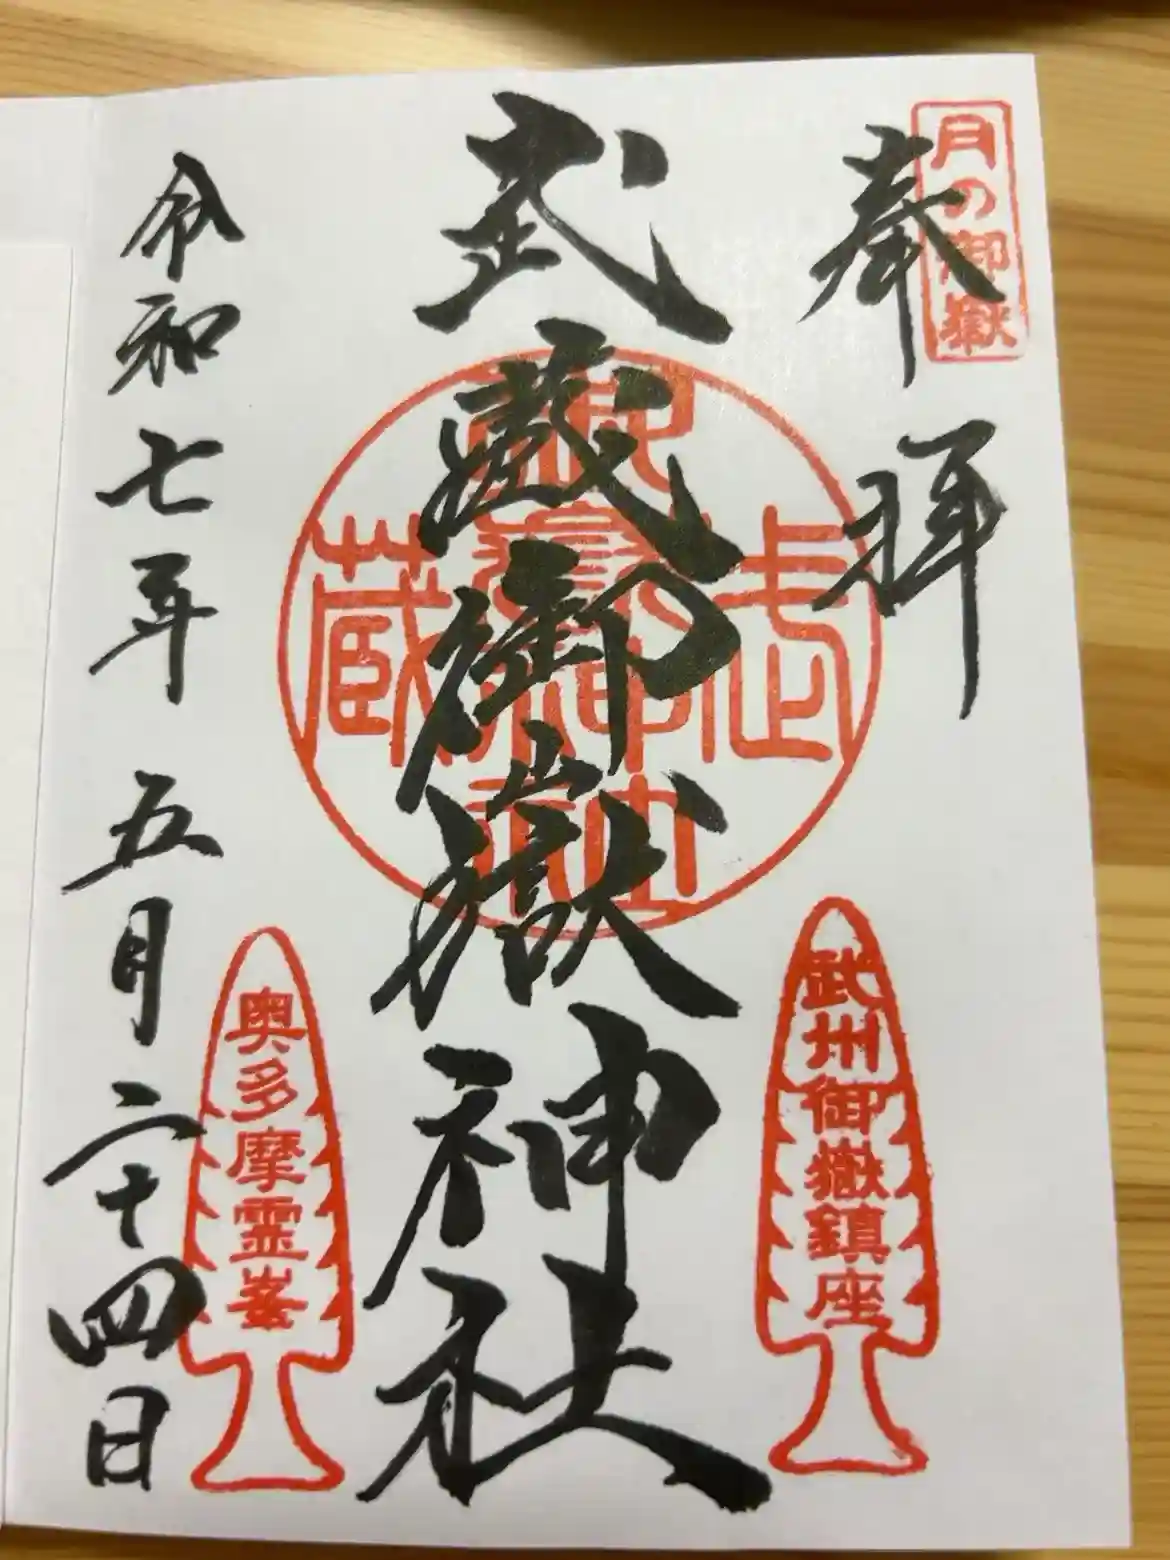 月の御嶽
奉拝
武州御嶽鎮座
武蔵御嶽神社
武蔵
奥多摩霊峯
令和七年五月二十四日